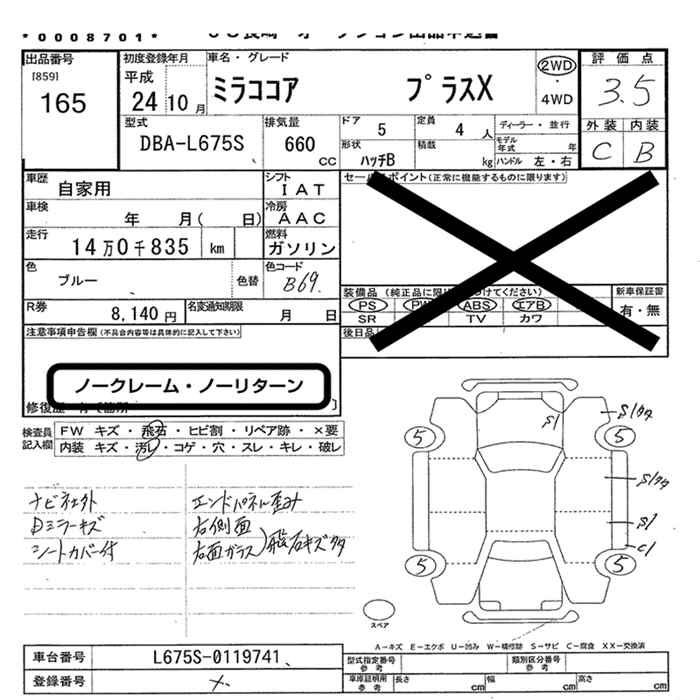 *0008701*
出品番号
[859]
165
初度登録年月
平成
24 10月
車名・グレード
ミラココア プラスX
2WD
4WD
評価点
3.5
外装 内装
C B
型式
DBA-L675S
排気量
660
cc
ドア
5
定員
4 人
ディーラー・並行
モデル年式 年
形状
ハッチB
積載
kg
ハンドル 左・右
車歴
自家用
シフト
IAT
車検
年 月( 日)
冷房
AAC
走行
14万0千835 km
燃料
ガソリン
色
ブルー
色替
色コード
B69
R券
8,140円
名変通知期限
月 日
セールスポイント(正常に機能するものに限ります)
装備品
PS PW ABS エアB
SR TV カワ
新車保証書
有・無
後日品
注意事項申告欄(不具合内容等は具体的に記入して下さい)
ノークレーム・ノーリターン
検査員記入欄
FW キズ・飛石・ヒビ割・リペア跡・×要
内装 キズ・汚レ・コゲ・穴・スレ・キレ・破レ
ナビ エンドパネル歪み
ミラーキズ 右側面
シートカバー付 右面ガラス 飛石キズ
S1
5 5
S1
C1
5 5
スペア
A-キズ E-エクボ U-凹み W-補修跡 S-サビ C-腐食 XX-交換済
車台番号
L675S-0119741
登録番号
型式指定番号 参考
類別区分番号 参考
車庫証明用 参考
長さ cm 幅 cm 高さ cm